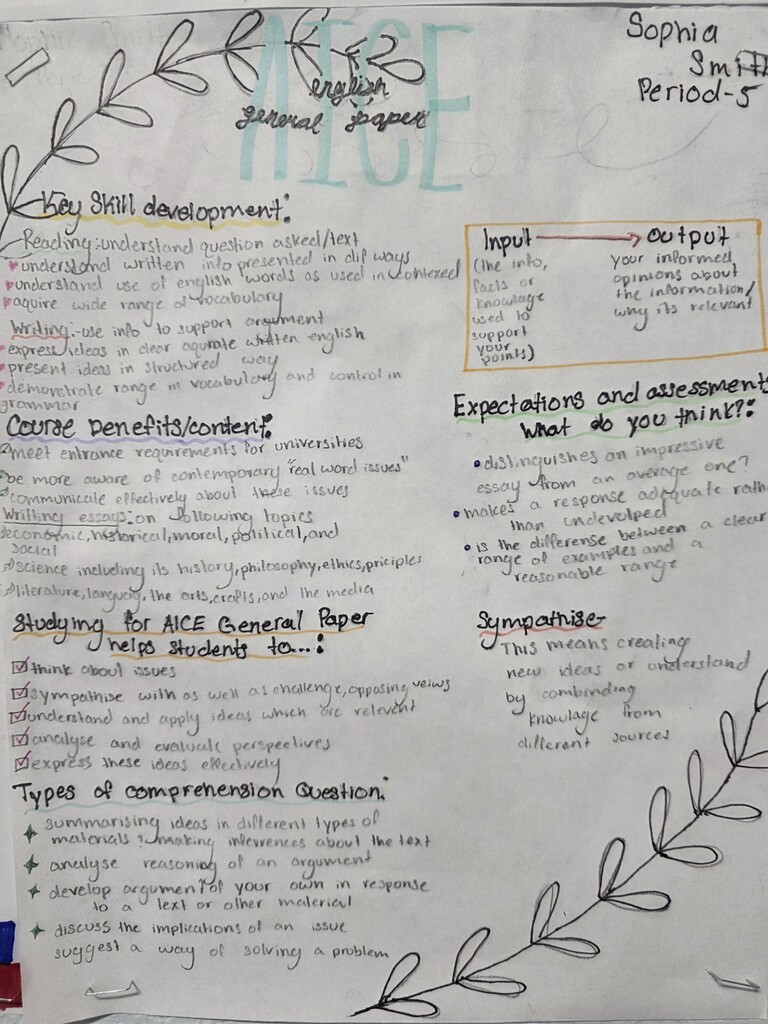 AICE
english
general paper
Sophia
Smith
Period-5
Key Skill development:
Reading: understand question asked/text
understand written info presented in dif ways
understand use of english words as used in contexed
aquire wide range of vocabulary
Writing:-use info to support argument
express ideas in clear aqurate written english
present ideas in structured way
demonstrate range in vocabulary and control in
grammar
Course benefits/content:
meet entrance requirements for universities
be more aware of contemporary "real word issues"
communicate effectively about these issues
Writting essays: on following topics
economic, historical, moral, political, and
social
science including its history, philosophy, ethics, priciples
literature, languag, the arts, crafts, and the media
Studying for AICE General Paper
helps students to...:
think about issues
sympathise with as well as challenge, opposing veiws
understand and apply ideas which are relevent
analyse and evaluate perspectives
express these ideas effectively
Types of comprehension Question:
summarising ideas in different types of
materials : making infevrences about the text
analyse reasoning of an argument
develop argument of your own in response
to a text or other material
discuss the implications of an issue
suggest a way of solving a problem
Input → Output
(the info,
facts or
knowlage
used to
support
your
points)
your informed
opinions about
the information/
why its relevant
Expectations and assessment
What do you think?:
distinguishes an impressive
essay from an average one?
makes a response adequate rath
than undevolped
is the differense between a clear
range of examples and a
reasonable range
Sympathise-
This means creating
new ideas or understand
by combinding
knowlage from
different sources